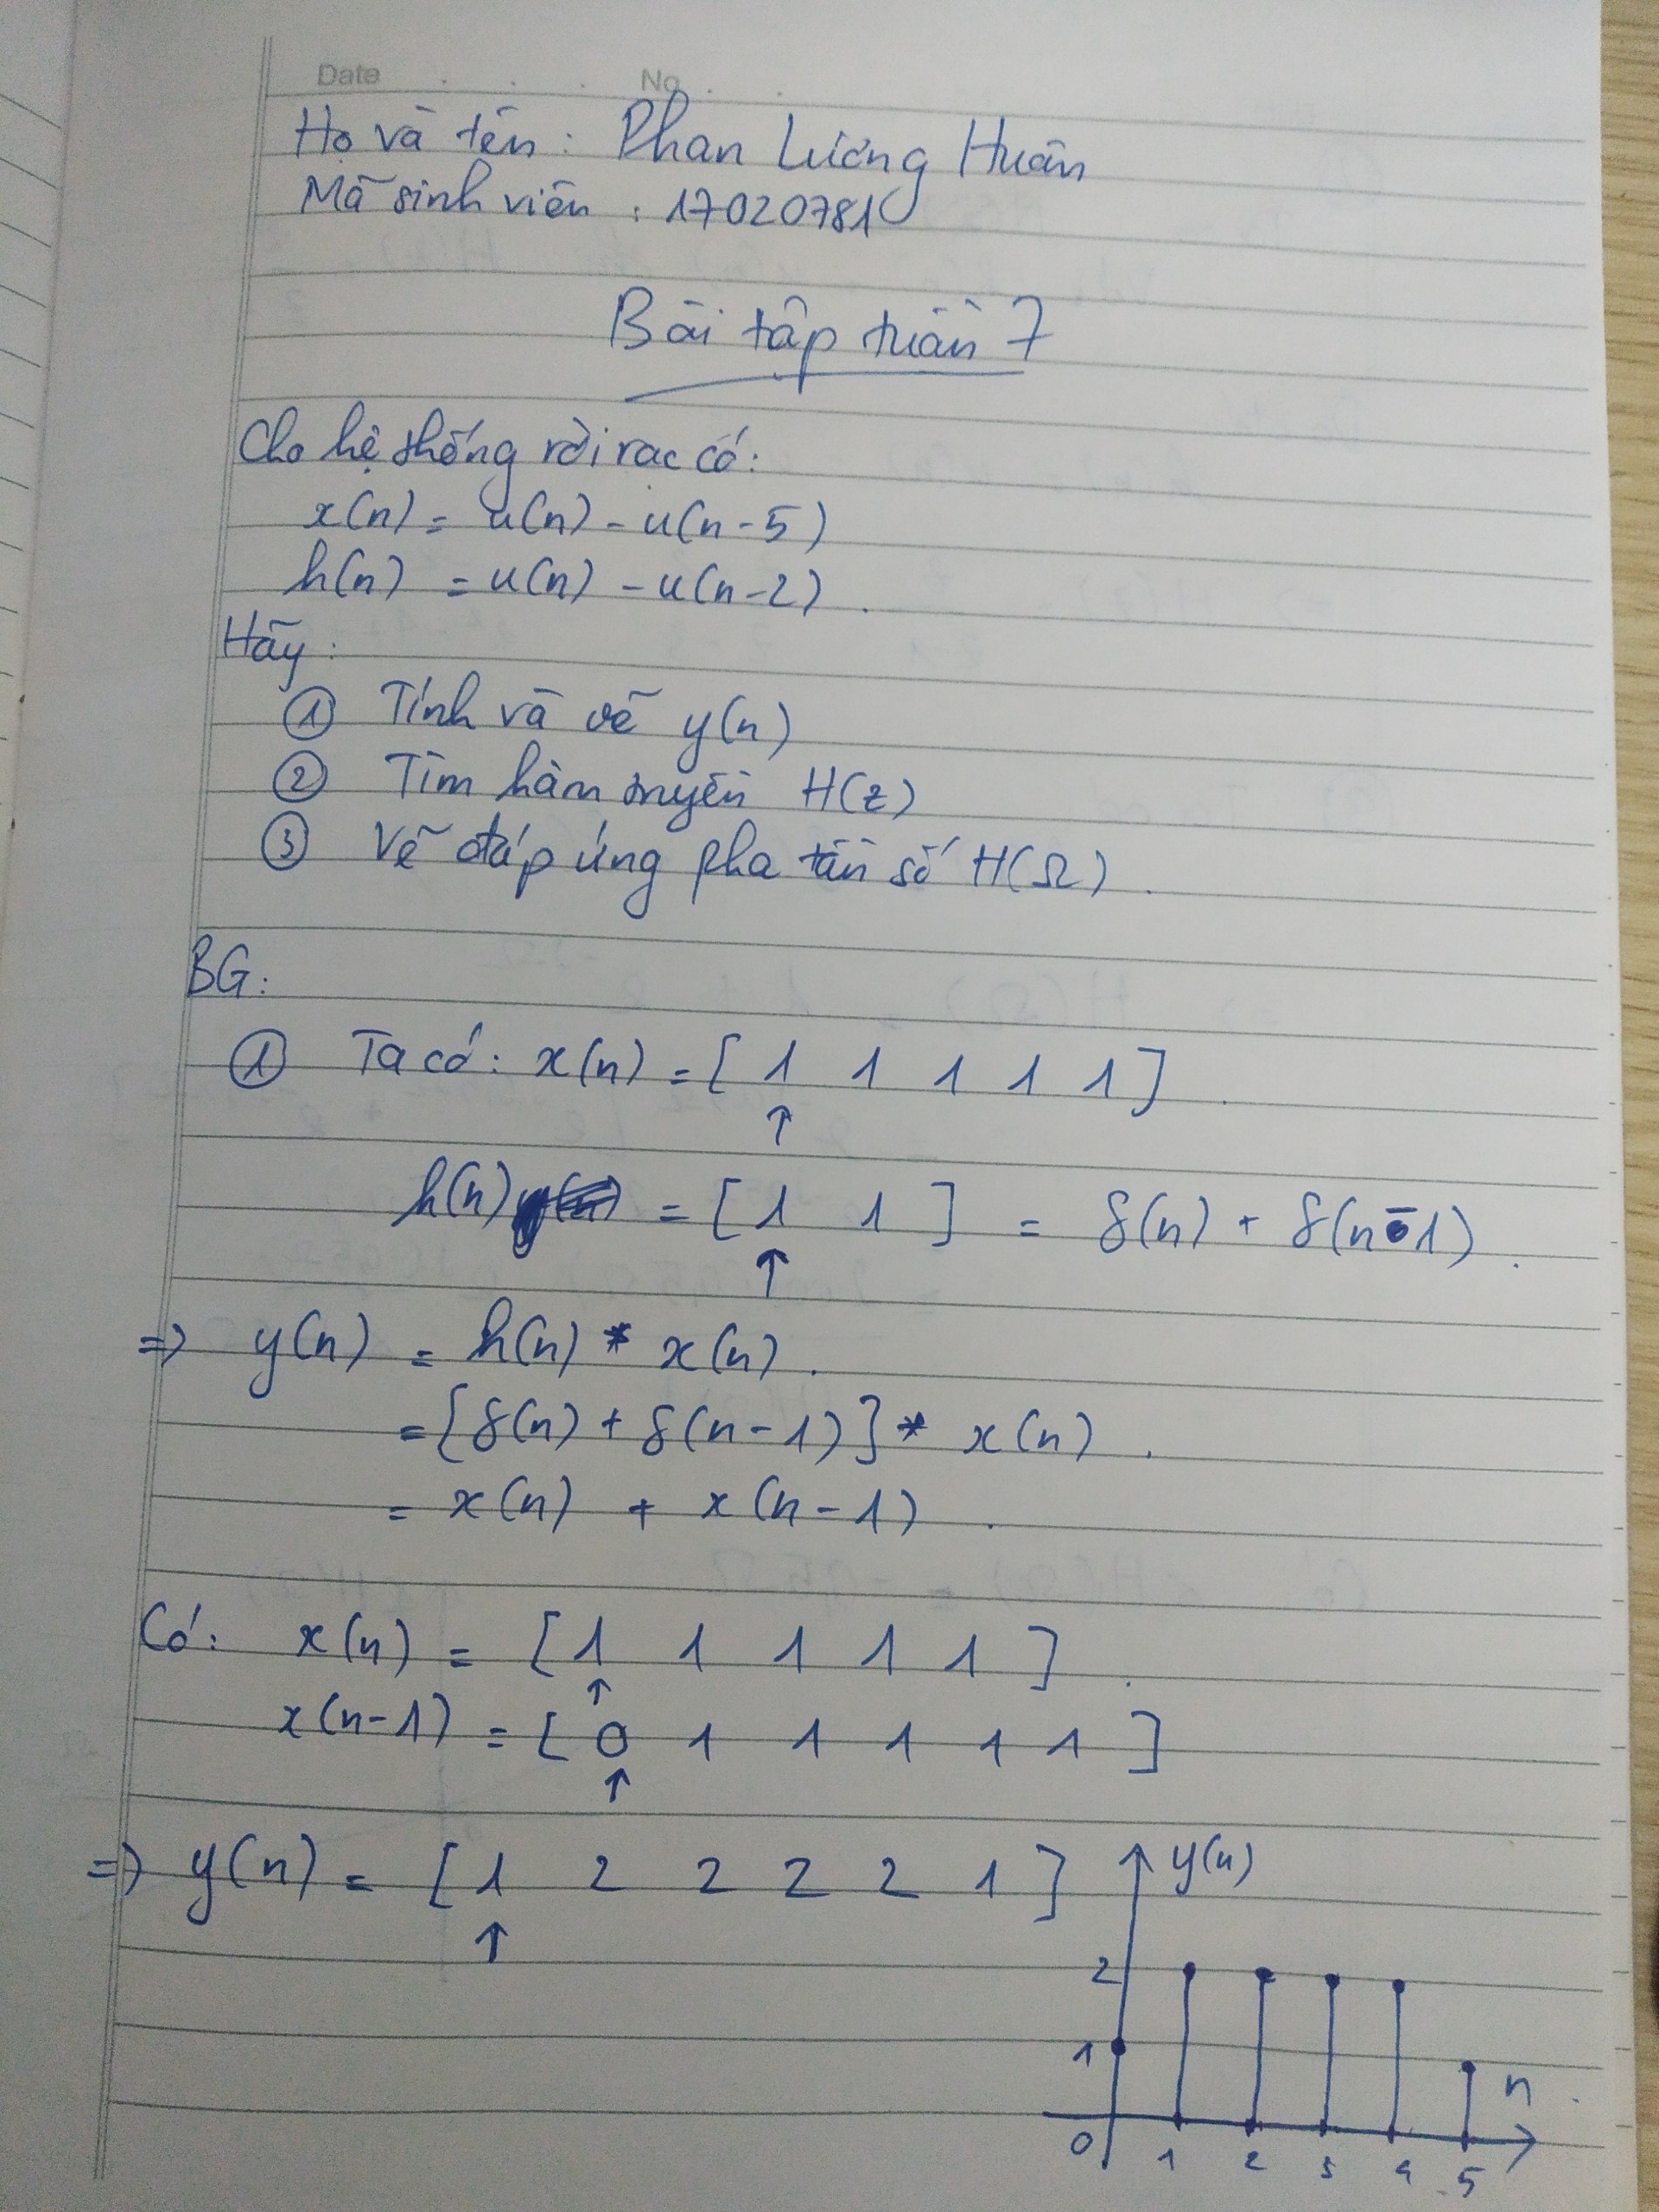 Date No
Họ và tên : Phan Lương Huân
Mã sinh viên : 17020781
Bài tập tuần 7
Cho hệ thống rời rạc có:
x(n) = u(n) - u(n-5)
h(n) = u(n) - u(n-2) .
Hãy :
① Tính và vẽ y(n)
② Tìm hàm truyền H(z)
③ Vẽ đáp ứng pha tần số H(Ω) .
BG:
① Ta có : x(n) = [ 1 1 1 1 1 ] .
↑
h(n) = [ 1 1 ] = δ(n) + δ(n-1) .
↑
=> y(n) = h(n) * x(n) .
= [δ(n) + δ(n-1)] * x(n) .
= x(n) + x(n-1) .
Có : x(n) = [ 1 1 1 1 1 ] .
↑
x(n-1) = [ 0 1 1 1 1 1 ]
↑
=> y(n) = [ 1 2 2 2 2 1 ]
↑
y(n)
2
1
n
0 1 2 3 4 5